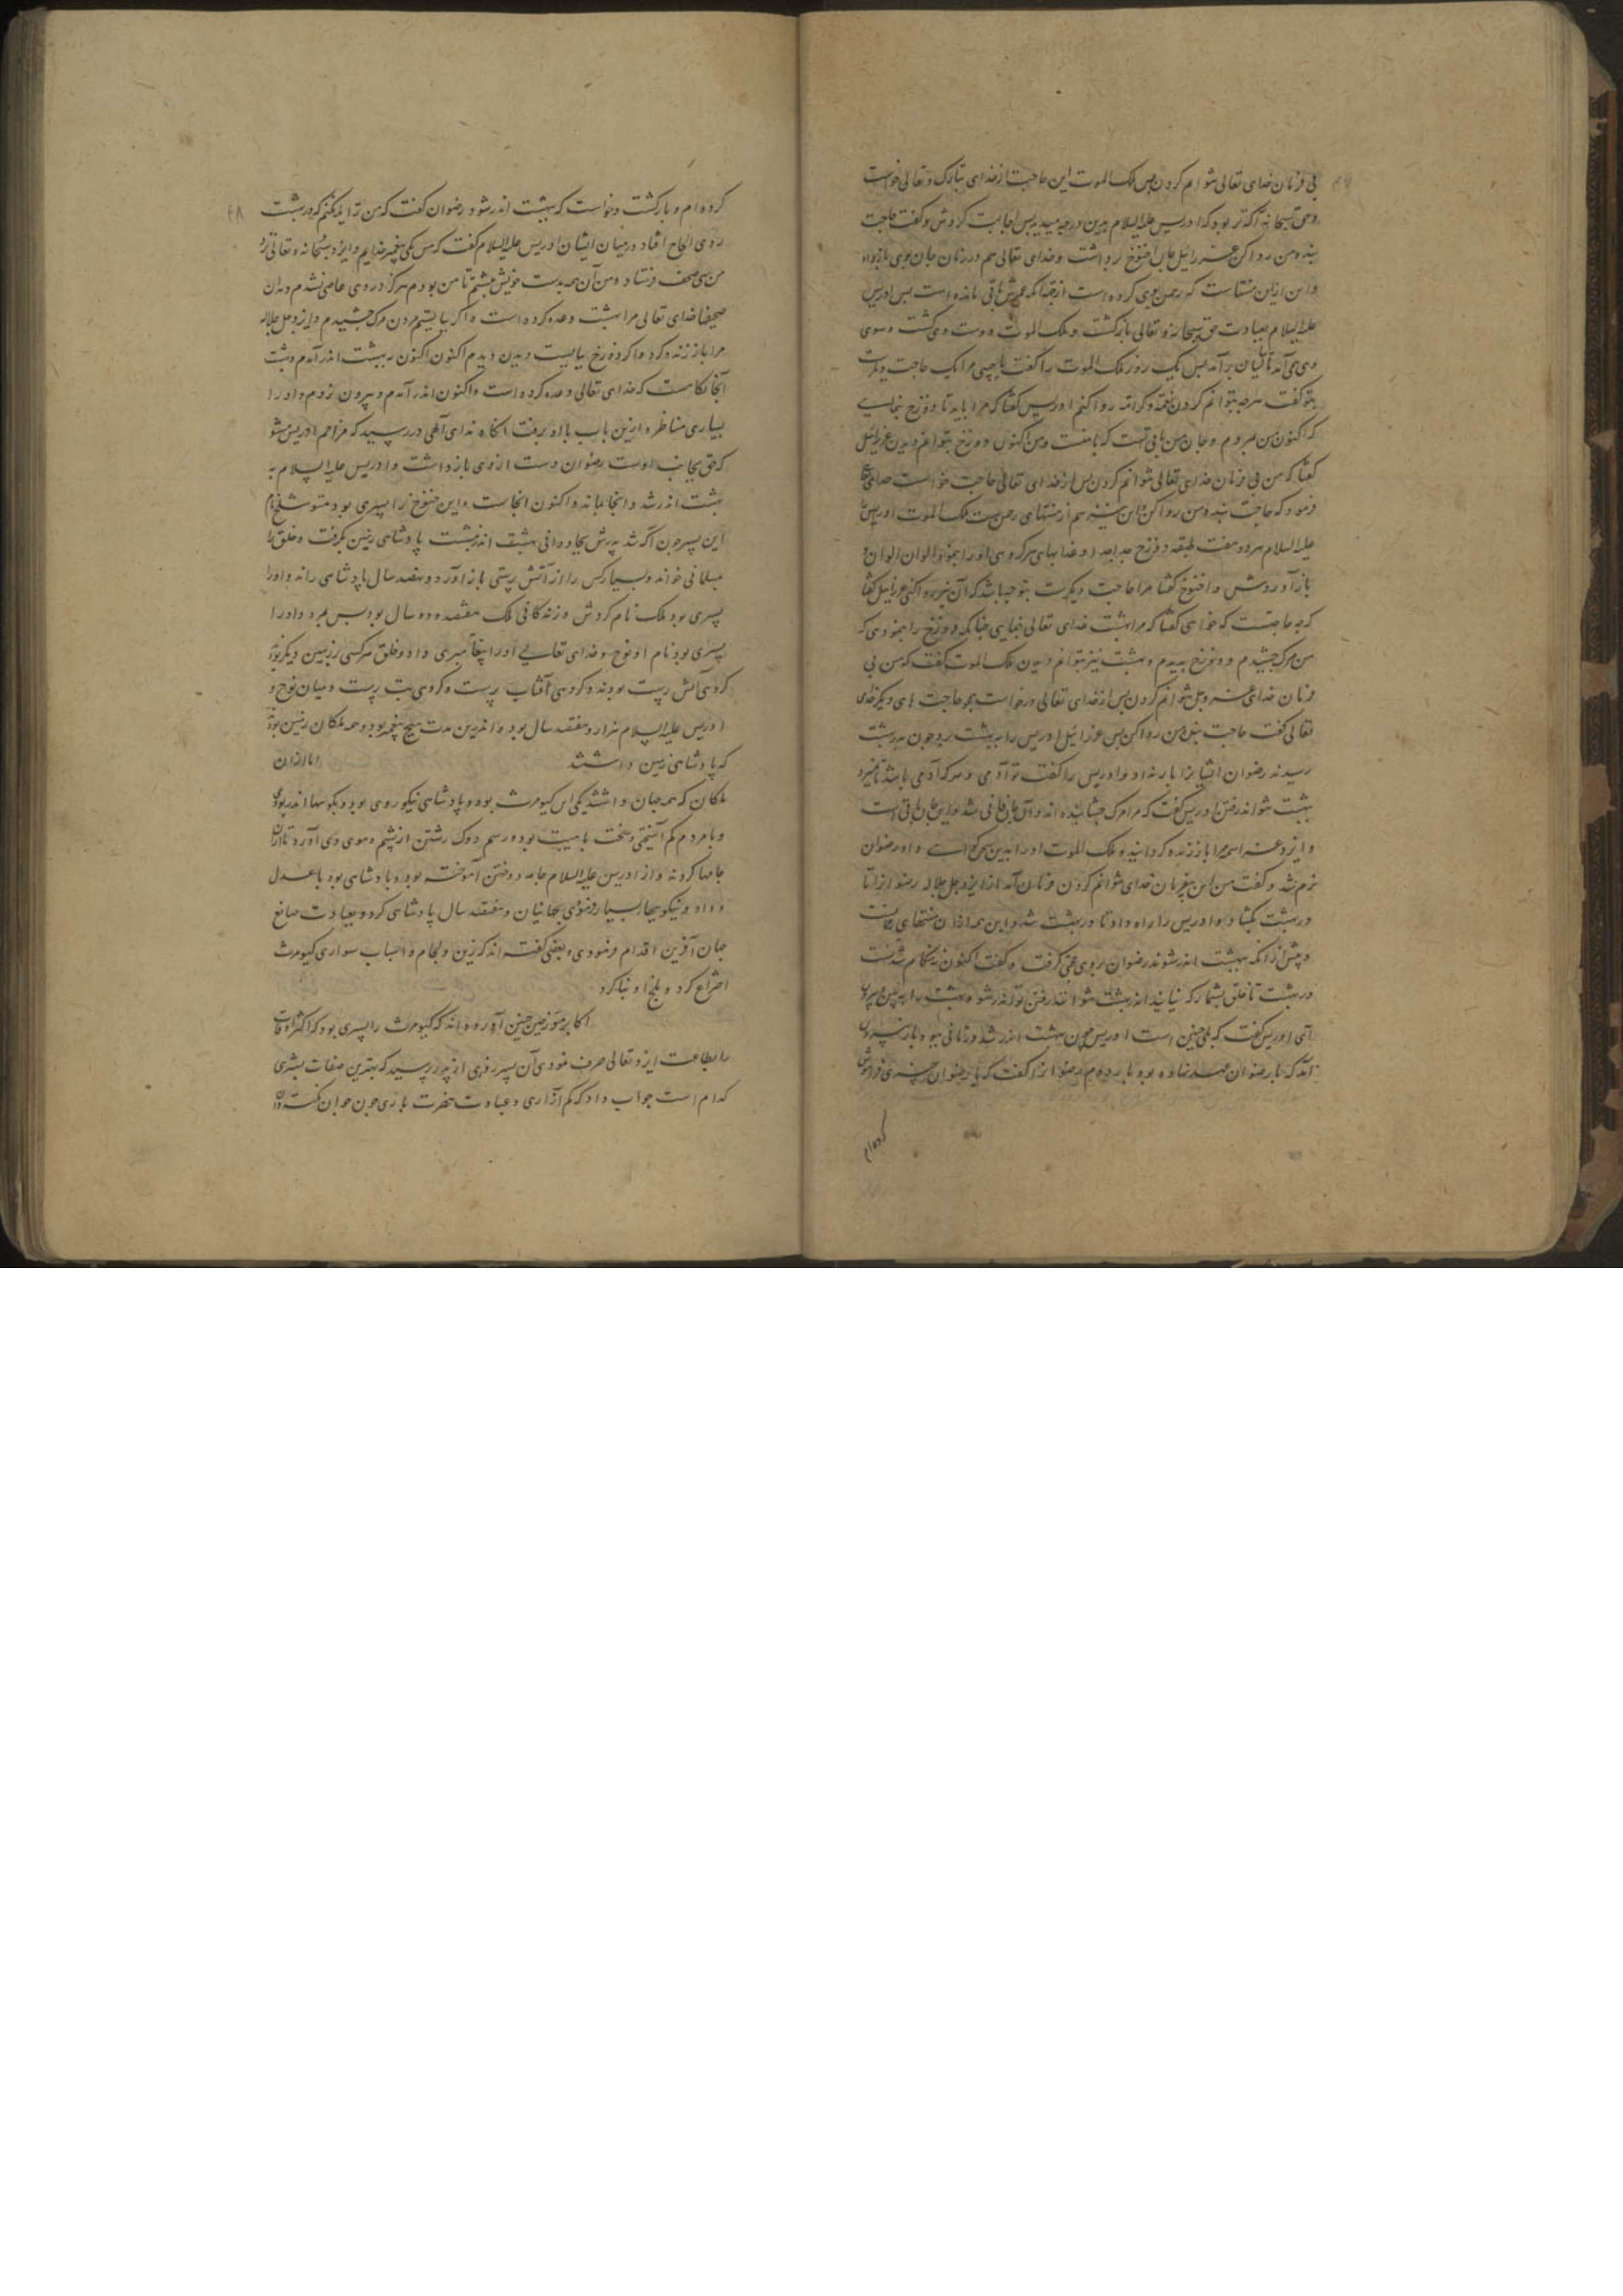 بی فرمان خدای تعالی نتوانم کردن پس ملک الموت این حاجت از خدای تبارک و تعالی خواست
و حق سبحانه آگه‌تر بود که ادریس علیه السلام بدین درجه میرسد پس اجابت کردش و گفت حاجت
بنده من روا کن عزرائیل جان اخنوخ برداشت و خدای تعالی هم در زمان جان بوی باز داد
و این ازان منتهاست که رحمن بوی کرده است از چندانکه عمرش باقی مانده است پس ادریس
علیه السلام بعبادت حق سبحانه و تعالی بازگشت و ملک الموت دوست وی گشت و سوی
وی می آمد تا سالیان برآمد پس یک روز ملک الموت را گفت یا مرا یک حاجت دیگرست
بتو گفت هرچه بتوانم کردن روا کنم ادریس گفتا که مرا باید تا دوزخ بنمایی
که اکنون من بمردم و جان من باقی تست که با منست و من اکنون دوزخ بتوانم دیدن عزرائیل
گفتا که من بی فرمان خدای تعالی نتوانم کردن پس از خدای تعالی حاجت خواست خدای تعالی
فرمود که حاجت بنده من روا کن و این نیز هم از منتهای رحمن ست ملک الموت ادریس
علیه السلام ببرد و هفت طبقه دوزخ جدا جدا و عذابهای هر گروهی او را بنمود الوان الوان و
باز آوردش و اخنوخ گفتا مرا حاجت دیگرست بتو چه باشد که آن نیز روا کنی عزرائیل گفتا
که چه حاجتست که خواهی گفتا که مرا بهشت خدای تعالی بنمایی چنانکه دوزخ را بنمودی که
من مرگ چشیدم و دوزخ بدیدم و بهشت نیز بتوانم دیدن ملک الموت گفت که من بی
فرمان خدای عز و جل نتوانم کردن پس از خدای تعالی درخواست همچو حاجت های دیگر خدای
تعالی گفت حاجت بنده من روا کن پس عزرائیل ادریس را به بهشت برد چون بدر بهشت
رسیدند رضوان ایشانرا بار نداد و ادریس را گفت تو آدمی و هر که آدمی باشد تا نمیرد
بهشت نتواند رفتن ادریس گفت که مرا مرگ چشانیده اند و آن جان فانی شد و این جان باقی است
و ایزد عز اسمه مرا باز زنده گردانید و ملک الموت او را بدین گواست و او رضوان
نرم نشد و گفت من این بی فرمان خدای نتوانم کردن فرمان آمد از ایزد جل جلاله رضوانرا تا
در بهشت بگشاد و ادریس را راه داد تا در بهشت شد و این همه ازان منتهای
و پیش ازانکه ببهشت اندر شوند رضوان بر وی گرفت و گفت اکنون نه هنگام نشستست
در بهشت تا خلق بشمار که نیایند اندر بهشت نتوانند رفتن تو اندر شو و بهشت را ببین و بیرون
آی ادریس گفت که همچنین است ادریس چون بهشت اندر شد و زمانی ببود باز بیرون
آمد که با رضوان عهد نهاده بود با رضوانرا گفت که یا رضوان چیزی فراموش
کرده‌ام
۴۸
کرده ام و بازگشت و خواست که ببهشت اندر شود رضوان گفت که من ترا یله نکنم که در بهشت
روی الحاح افتاد در میان ایشان ادریس علیه السلام گفت که من یکی پیغمبر خدایم و ایزد سبحانه و تعالی بر
من سی صحف فرستاد و من آن همه بدست خویش نبشتم تا من بودم هرگز در وی عاصی نشدم و بدان
صحیفها خدای تعالی مرا بهشت وعده کرده است و اگر بایستم مردن مرگ چشیدم و ایزد جل جلاله
مرا باز زنده کرد و اگر دوزخ بایست دیدن دیدم اکنون اکنون ببهشت اندر آمدم و بهشت
آنجایگاست که خدای تعالی وعده کرده است و اکنون اندر آمدم و بیرون نروم و او را
بسیاری مناظره ازین باب با او برفت آنگاه ندای آلهی در رسید که مزاحم ادریس مشو
که حق بجانب اوست رضوان دست از وی بازداشت و ادریس علیه السلام به
بهشت اندر شد و آنجا بماند و اکنون آنجاست و این خنوخ را پسری بود متوشلخ نام
این پسر چون آگه شد پدرش بجاودانی بهشت اندرست پادشاهی زمین بگرفت و خلق را
بمسلمانی خواند و بسیار کس را از آتش پرستی باز آورد و نهصد سال پادشاهی راند و او را
پسری بود ملک نام کردش و زندگانی ملک هفتصد و ده سال بود پس بمرد و او را
پسری بود نام او نوح و خدای تعالی او را پیغامبری داد و خلق هر کسی بر دین دیگر بودند
گروهی آتش پرست بودند و گروهی آفتاب پرست و گروهی بت پرست و میان نوح و
ادریس علیه السلام هزار و هفتصد سال بود و اندرین مدت هیچ پیغمبر نبود و همه ملکان زمین بودند
که پادشاهی زمین داشتند اما ازان
ملکان که همه جهان داشتند یکی این کیومرث بود و پادشاهی نیکو روی بود و بکوهها اندر بودی
و با مردم کم آمیختی و سخت با هیبت بود و رسم دوک رشتن از پشم و موی وی آورد تا ازان
جامها کردند و از ادریس علیه السلام جامه دوختن آموخته بود و پادشاهی بود با عدل
و داد و نیکویها بسیار فرمودی بجهانیان و هفتصد سال پادشاهی کرد و بعبادت صانع
جهان آفرین اقدام فرمودی و بعضی گفته اند که زین و لجام و اسباب سواری کیومرث
اختراع کرد و بلخ او بنا کرد
اکابر مورخین چنین آورده اند که کیومرث را پسری بود که اکثر اوقات
را بطاعت ایزد تعالی صرف نمودی آن پسر روزی از پدر پرسید که بهترین صفات بشری
کدام است جواب داد که کم آزاری و عبادت حضرت باری چون جوان